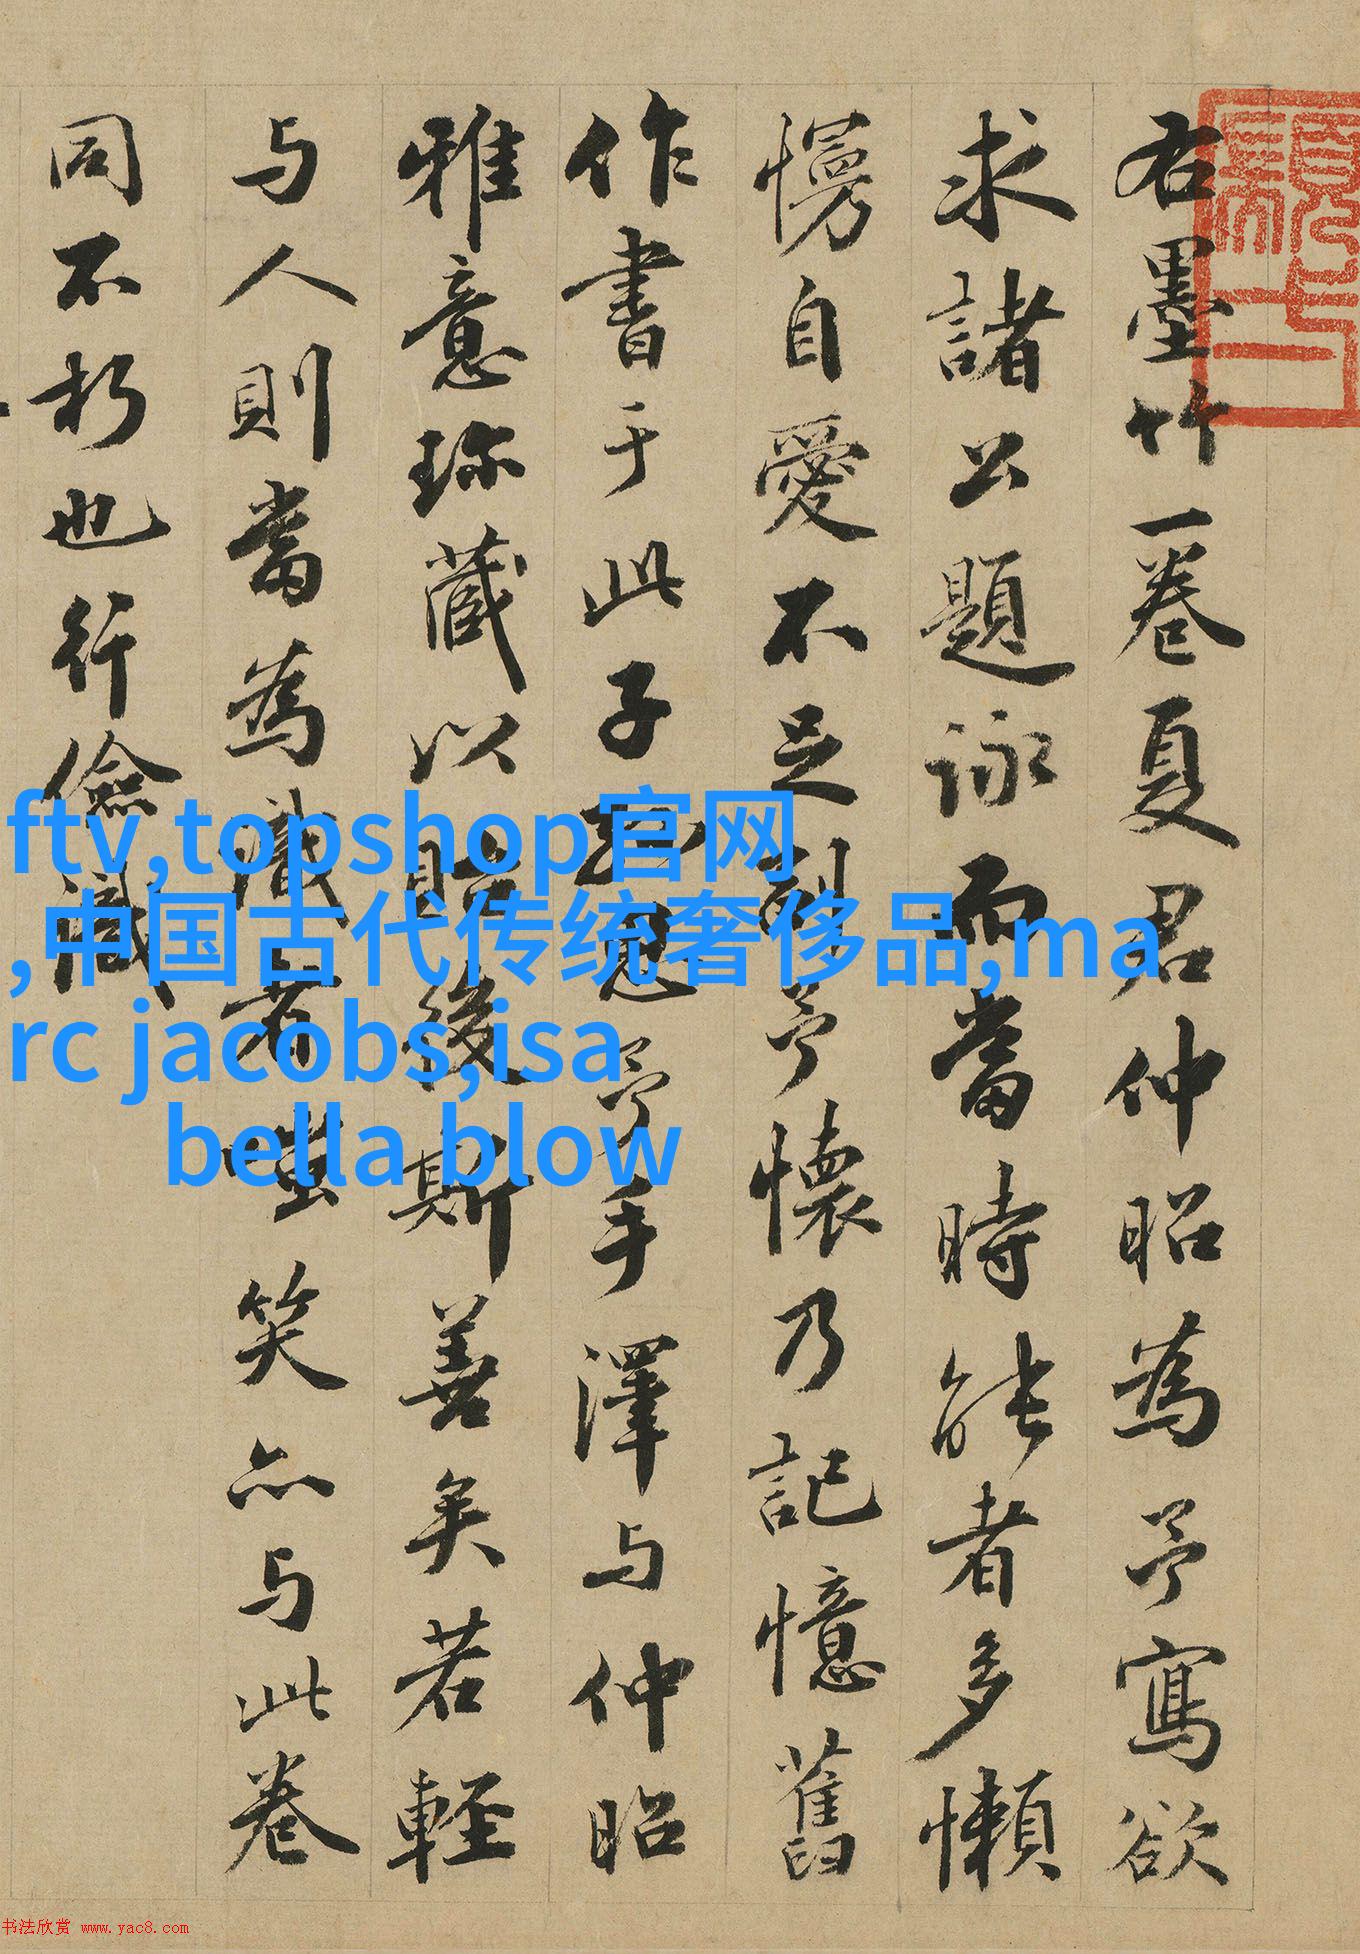 右墨竹一卷夏君仲昭為予寫欲
求諸公題詠而當時能者多懶
慢自愛不足副予懷乃記憶舊
作書于此子孫思予手澤与仲昭
雅意珎藏以貽後斯善矣若輕
与人則當為識者嗤笑亦与此卷
同不朽也行儉識
ftv,topshop官网
,中国古代传统奢侈品,ma
rc jacobs,isa
bella blow
书法欣赏 www.yac8.com